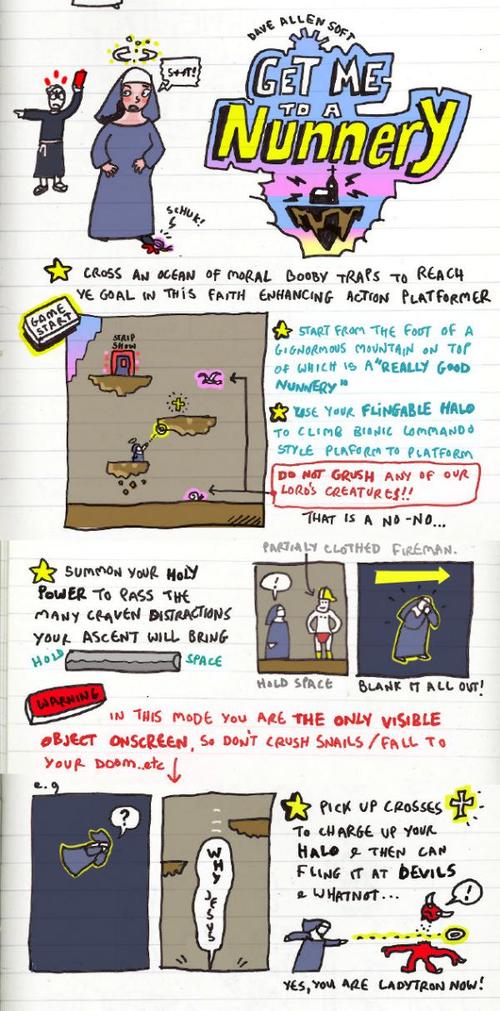 DAVE ALLEN SOFT
GET ME
TO A
NUNNERY
S**T!
SCHUK!
CROSS AN OCEAN OF MORAL BOOBY TRAPS TO REACH
YE GOAL IN THIS FAITH ENHANCING ACTION PLATFORMER
GAME
START
STRIP
SHOW
START FROM THE FOOT OF A
GIGNORMOUS MOUNTAIN ON TOP
OF WHICH IS A "REALLY GOOD
NUNNERY"
USE YOUR FLINGABLE HALO
TO CLIMB BIONIC COMMANDO
STYLE PLAFORM TO PLATFORM
DO NOT CRUSH ANY OF OUR
LORD'S CREATURES!!
THAT IS A NO-NO...
SUMMON YOUR HOLY
POWER TO PASS THE
MANY CRAVEN DISTRACTIONS
YOUR ASCENT WILL BRING
HOLD SPACE
PARTIALY CLOTHED FIREMAN.
!
HOLD SPACE
BLANK IT ALL OUT!
WARNING
IN THIS MODE YOU ARE THE ONLY VISIBLE
OBJECT ONSCREEN, SO DON'T CRUSH SNAILS / FALL TO
YOUR DOOM..etc
e.g
?
WHY JESUS
PICK UP CROSSES
TO CHARGE UP YOUR
HALO & THEN CAN
FLING IT AT DEVILS
& WHATNOT...
!
YES, YOU ARE LADYTRON NOW!